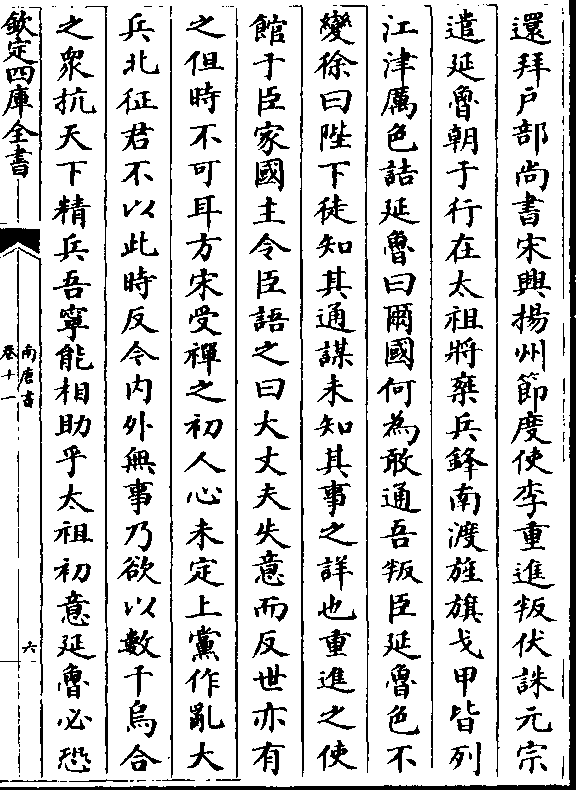 還拜戸部尚書宋興揚州節度使李重進叛伏誅元宗
遣延魯朝于行在太祖將乗兵鋒南渡旌旗戈甲皆列
江津厲色詰延魯曰爾國何為敢通吾叛臣延魯色不
變徐曰陛下徒知其通謀未知其事之詳也重進之使
館于臣家國主令臣語之曰大丈夫失意而反世亦有
之但時不可耳方宋受禪之初人心未定上黨作亂大
兵北征君不以此時反今内外無事乃欲以數千烏合
之衆抗天下精兵吾寧能相助乎太祖初意延魯必恐
欽定四庫全書
南唐書
卷十一
六